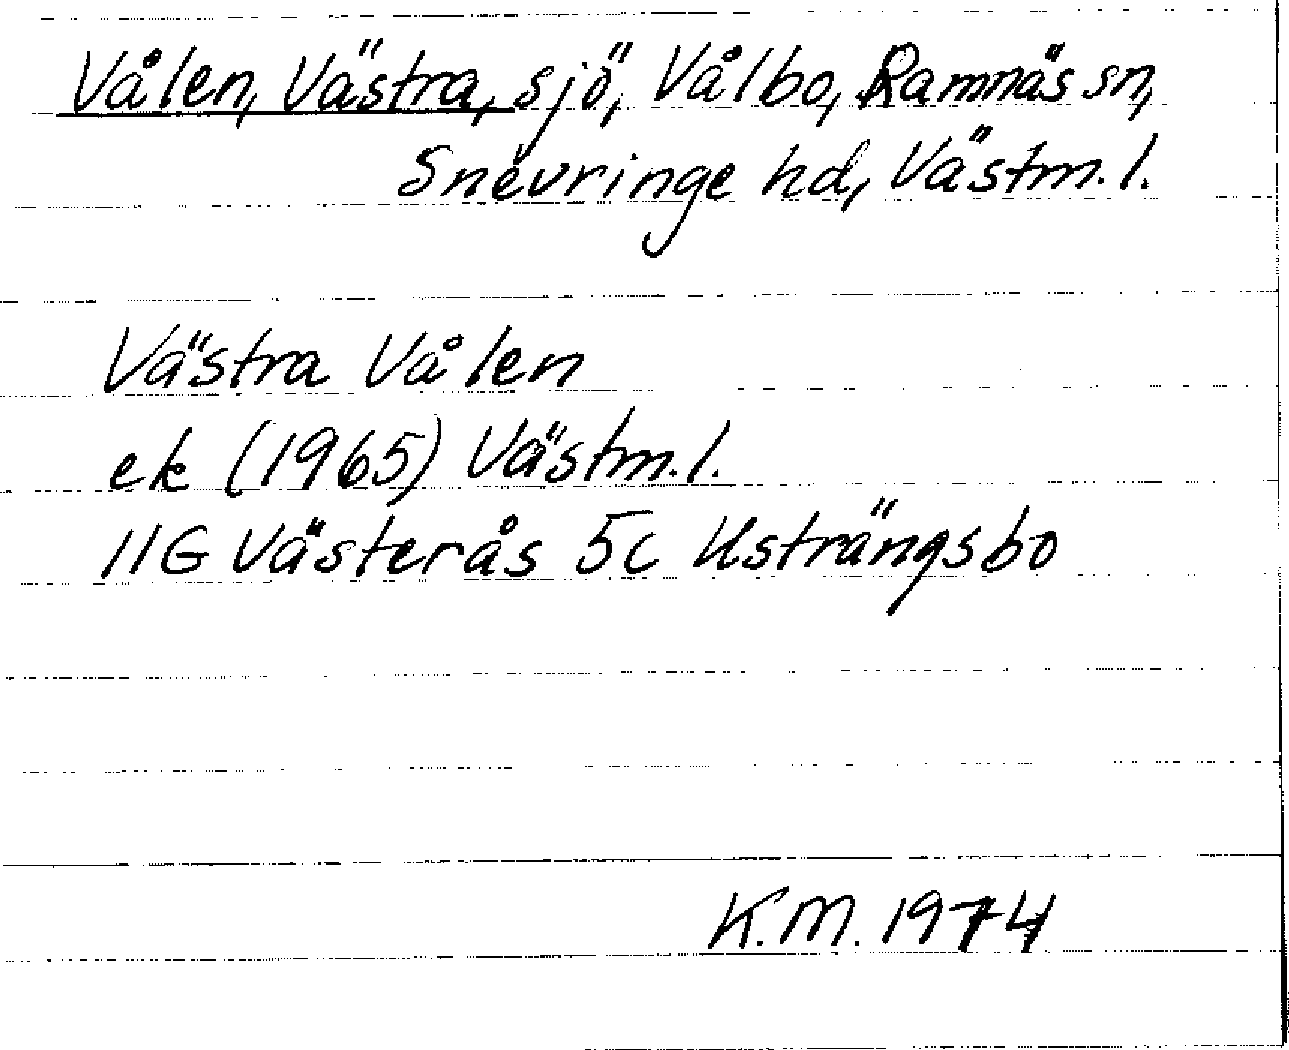 Vålen, Västra, sjö, Vålbo, Ramnäs sn,
Snevringe hd, Västm. l.
Västra Vålen
ek (1965) Västm. l.
11G Västerås 5c Usträngsbo
K.M. 1974